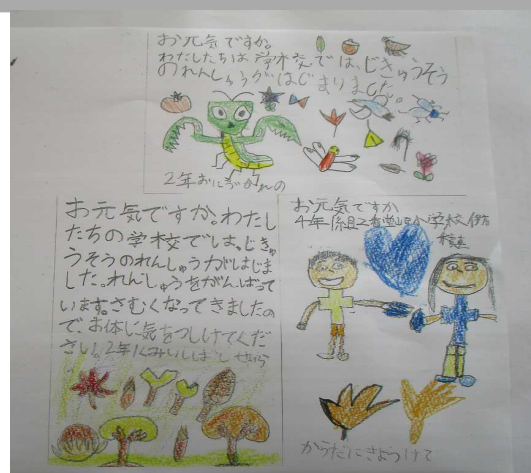 お元気ですか。
わたしたちは学校では、じきゅうそう
のれんしゅうがはじまりました。
2年
お元気ですか。わたし
たちの学校では、じきゅ
うそうのれんしゅうがはじま
しました。れんしゅうをがんばって
います。さむくなってきましたの
で、お体に気をつしけてくだ
さい。2年
お元気ですか
4年 学校
からだにきよつけて